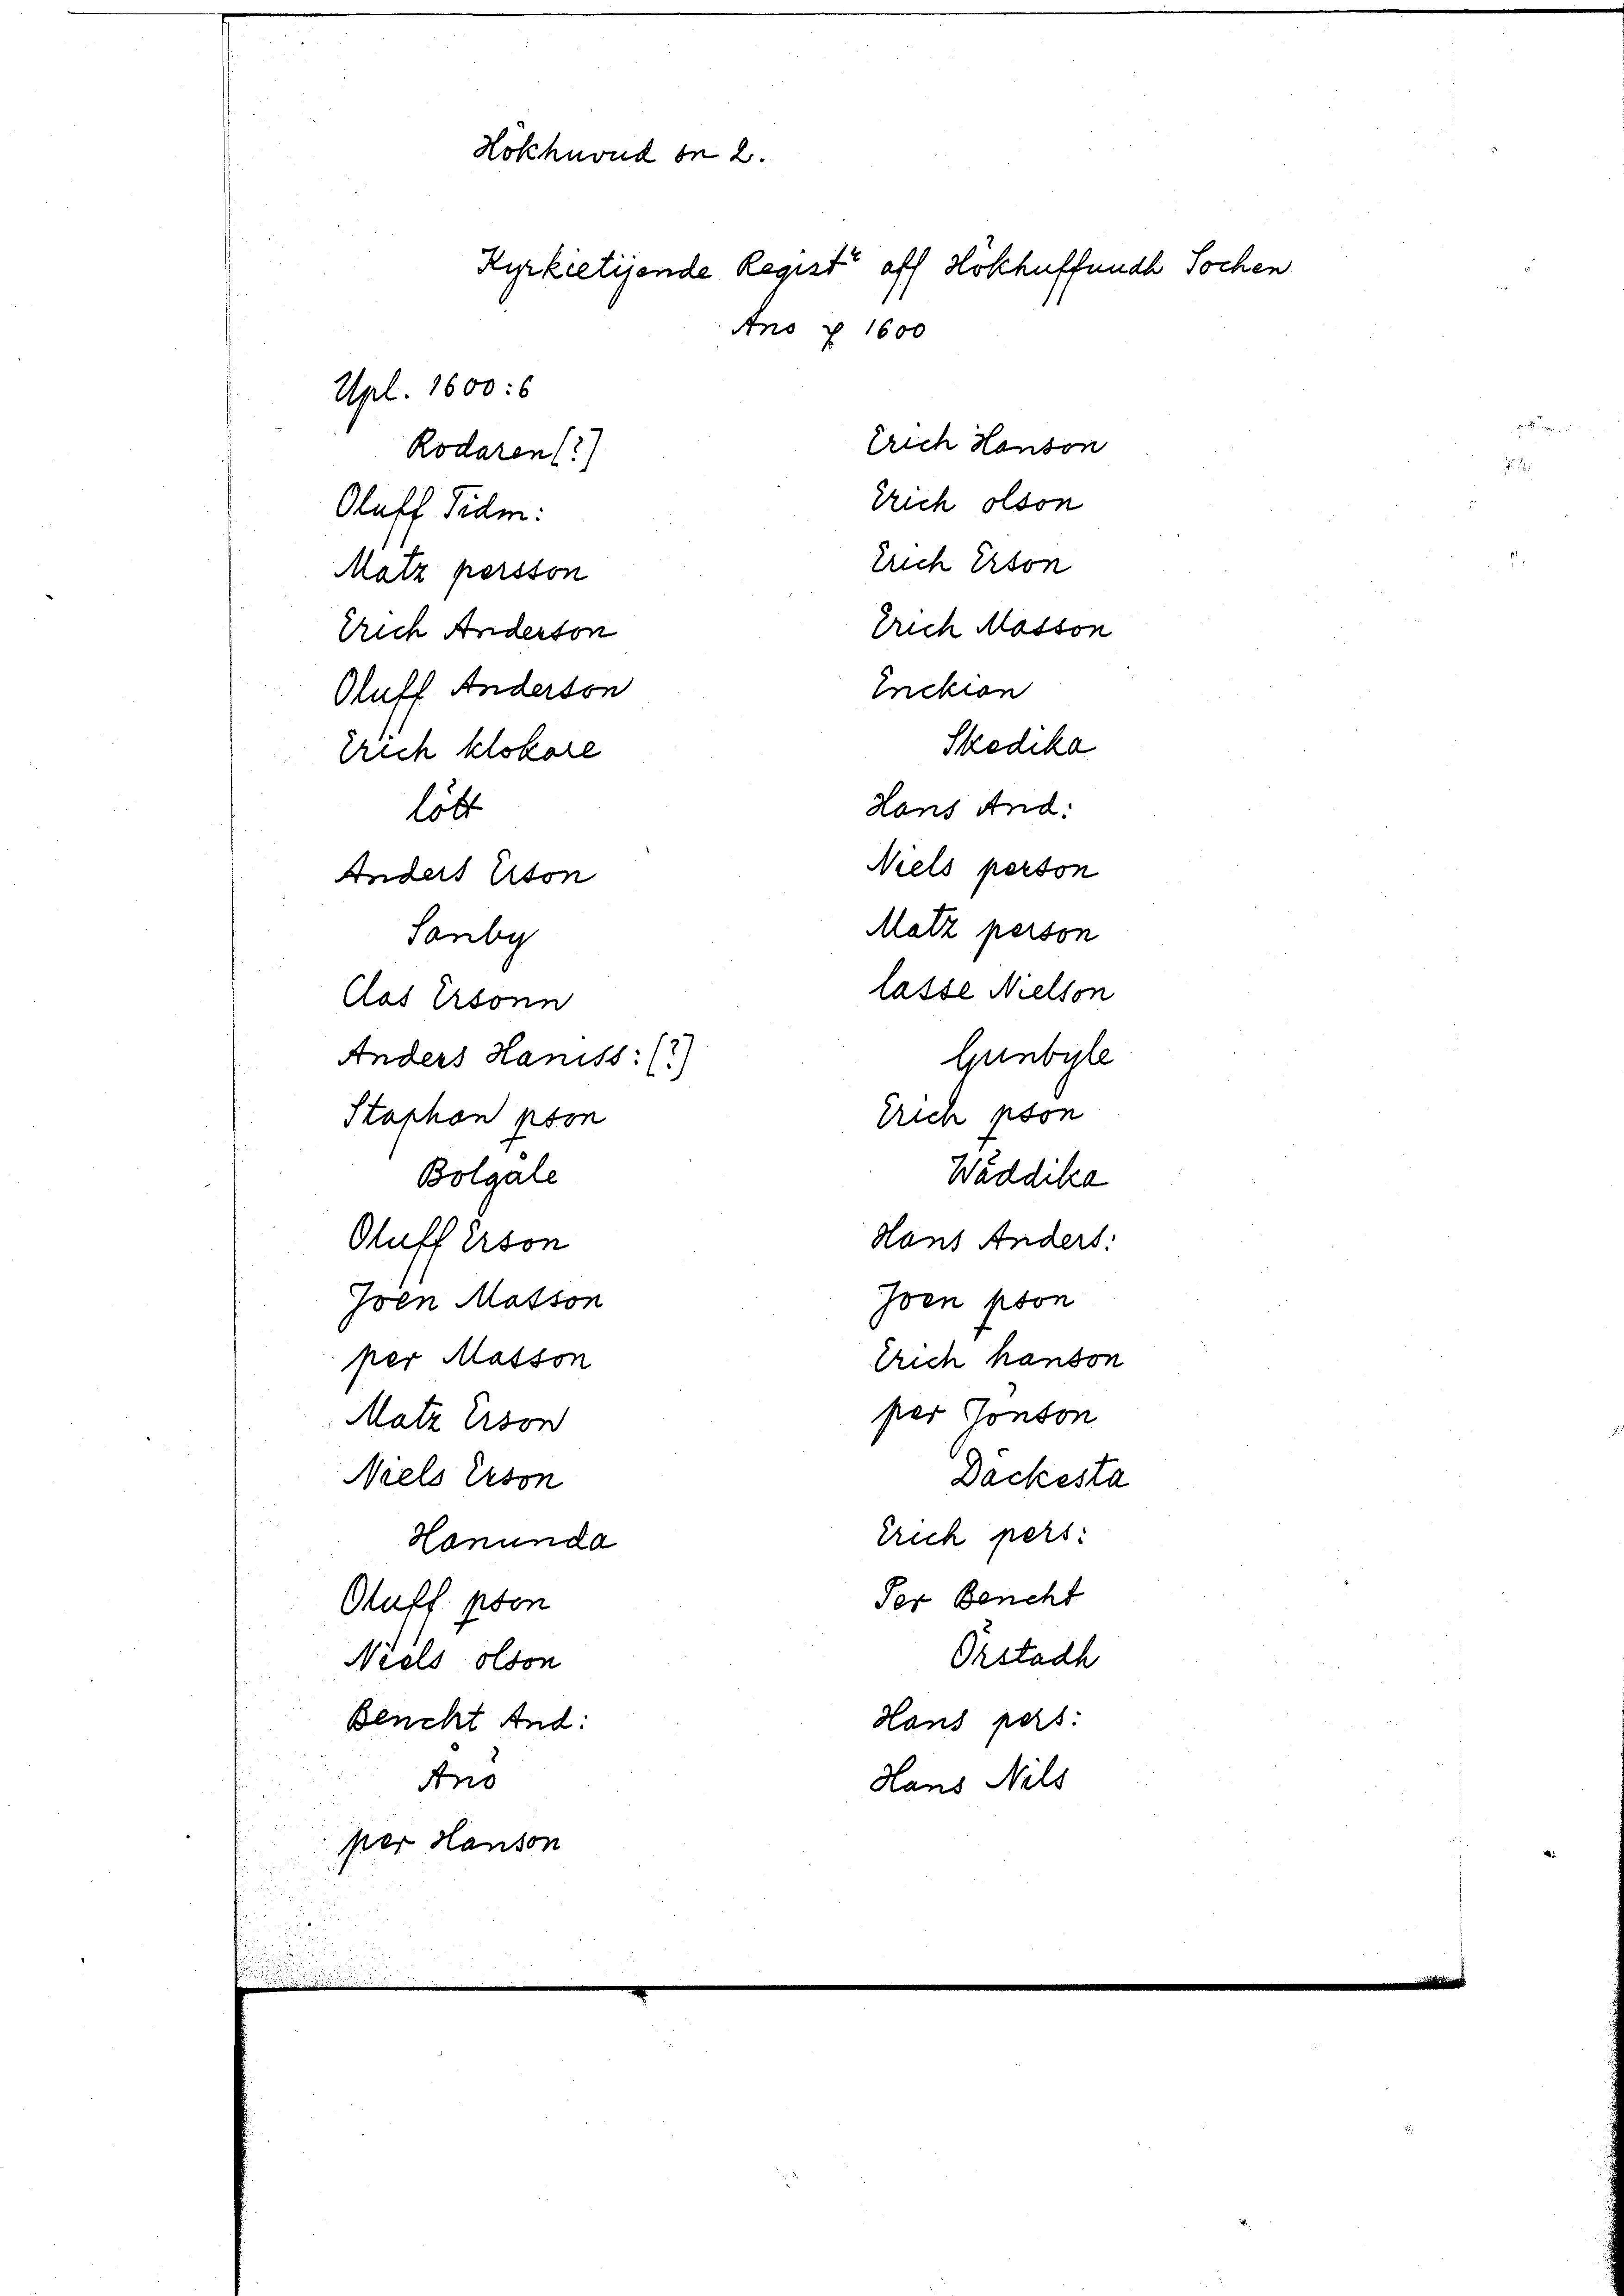 Hökhuvud sn 2.
Kyrkietijende Registr aff Hökhuffundh Sochen
Ano 1600
Upl. 1600:6
Rodaren (?)
Oluff Tidm:
Matz persson
Erich Anderson
Oluff Anderson
Erich klokare
lött
Anders Erson
Sanby
Clas Ersonn
Anders Haniss: (?)
Staphan pson
Bolgåle
Oluff Erson
Joen Matson
per Matson
Matz Erson
Niels Erson
Hanunda
Oluff pson
Niels olson
Bencht And:
Ånö
per Hanson
Erich Hanson
Erich olson
Erich Erson
Erich Masson
Enckian
Skedika
Hans And:
Niels person
Matz person
lasse Nielson
Gunbyle
Erich pson
Wäddika
Hans Anders:
Joen pson
Erich hanson
per Jönson
Däckesta
Erich pers:
Per Bencht
Örstadh
Hans pers:
Hans Nils